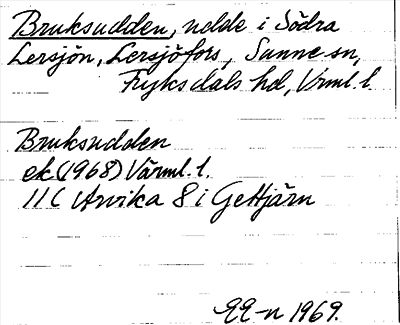 Bruksudden, udde i Södra
Lersjön, Lersjöfors, Sunne sn,
Fryksdals hd, Vrml. l.
Bruksudden
ek (1968) Värml. l.
11C Arvika 8 i Gettjärn
1969.